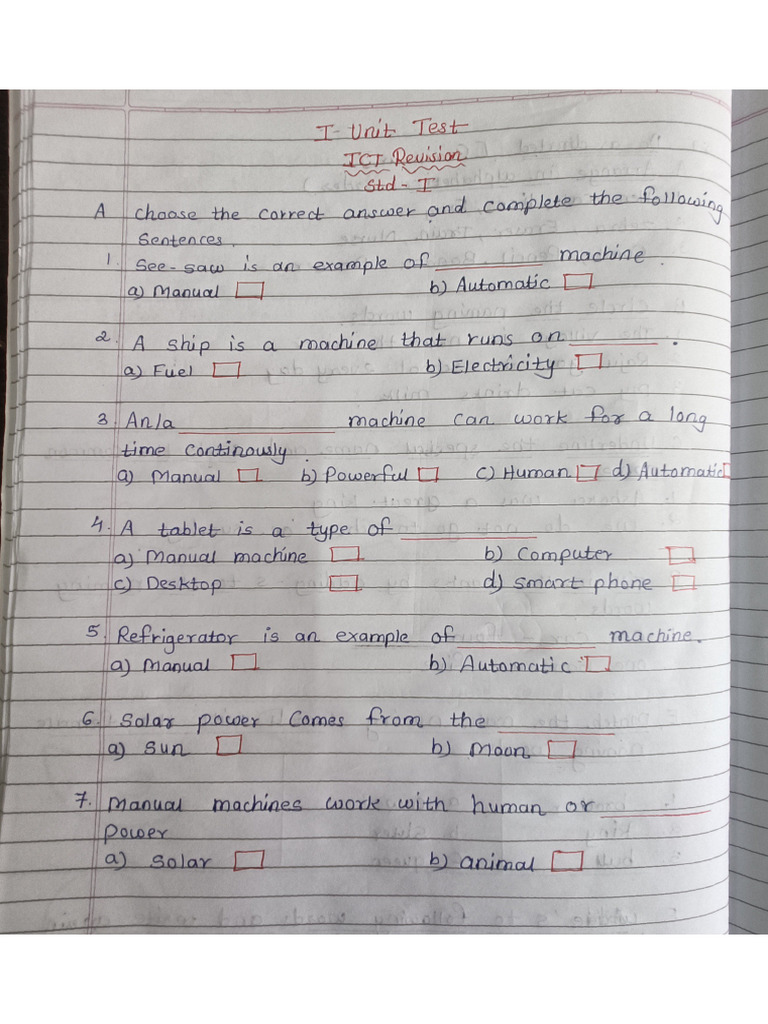 I- Unit Test
ICT Revision
Std - I
A choose the correct answer and complete the following
Sentences.
1. See-saw is an example of ________ machine.
a) Manual b) Automatic
2. A ship is a machine that runs on ________.
a) Fuel b) Electricity
3. An/a ________ machine can work for a long
time continously.
a) Manual b) Powerful c) Human d) Automatic
4. A tablet is a type of ________
a) Manual machine b) Computer
c) Desktop d) smart phone
5. Refrigerator is an example of ________ machine.
a) Manual b) Automatic
6. Solar power comes from the ________
a) Sun b) Moon
7. Manual machines work with human or ________
power
a) Solar b) animal